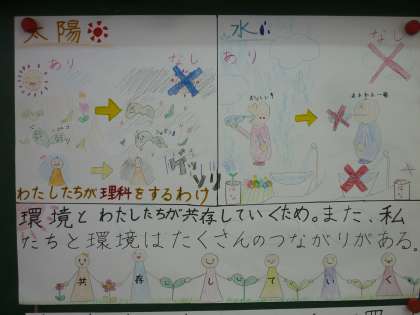 太陽
あり
なし
ゲッソリ
水
あり
なし
わたしたちが理科をするわけ
環境とわたしたちが共存していくため。また、私
たちと環境はたくさんのつながりがある。
共存していく